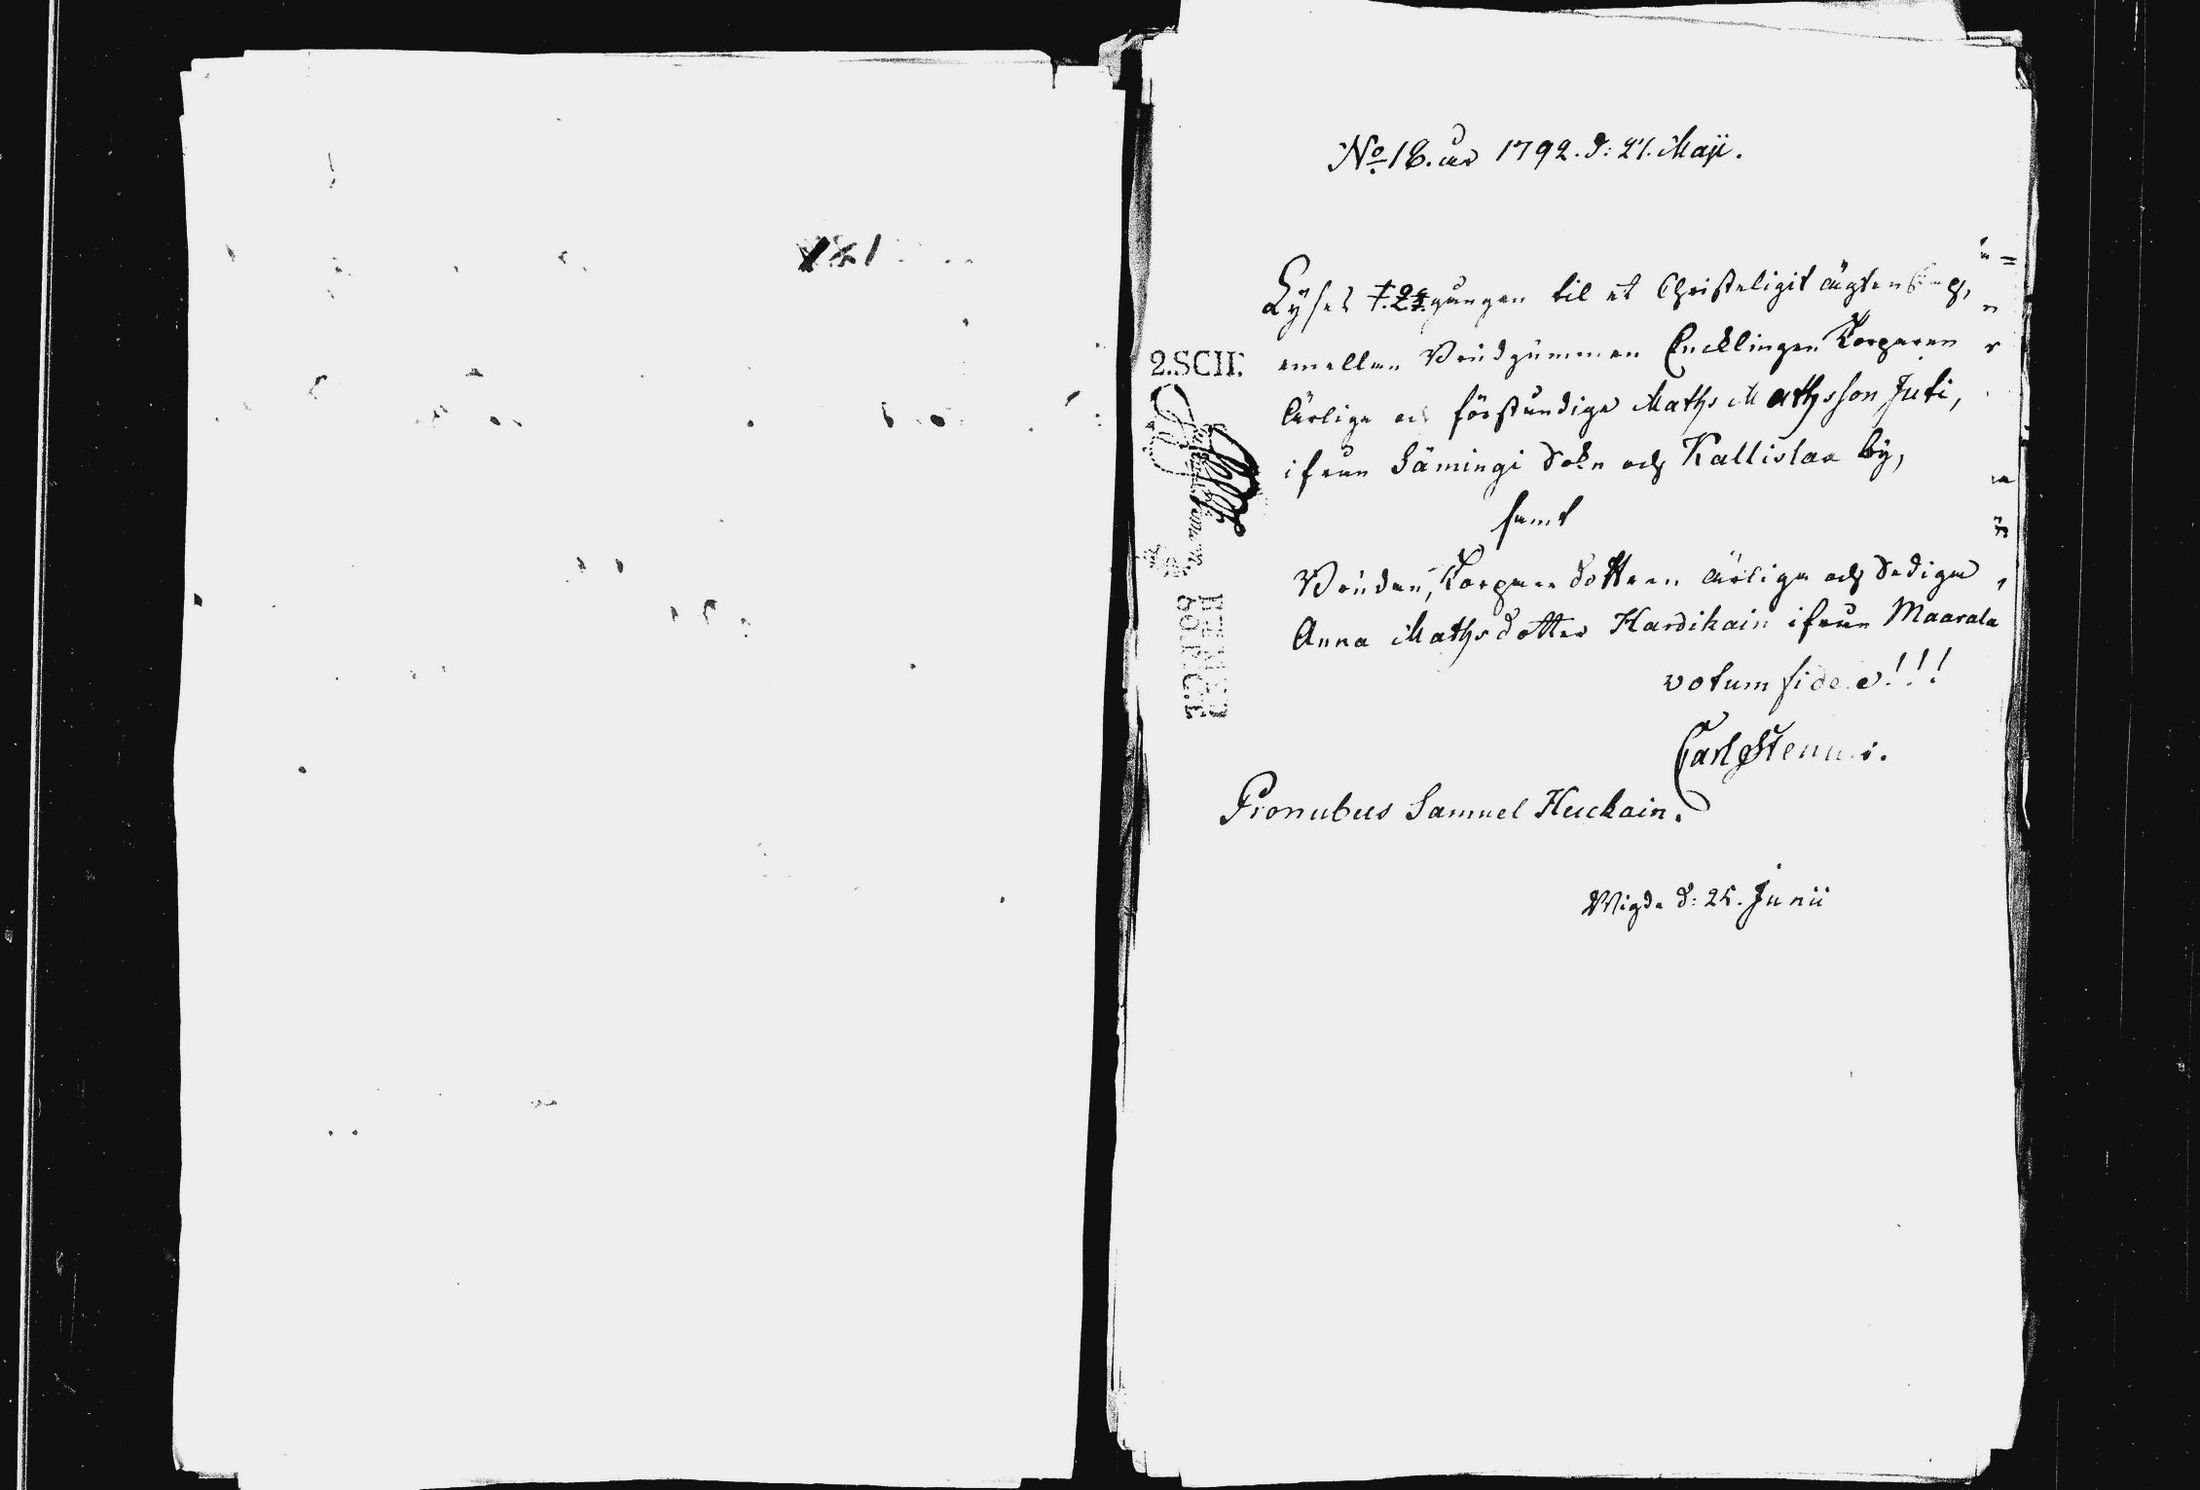 No 18. år 1792. d: 27. Maji.
Lyses gången til et Christeligit ägtenskap,
emellan Brudgummen Encklingen Torparen
Ärlige och förståndige Maths Mathsson Juti,
ifrån Säminge Sokn och Kallislax by,
samt
Bruden, Torpare dottern ärliga och Sediga
Anna Maths dotter Hardikain ifrån Maarala
votum fidei!!!
Carl Stenius.
Pronubus Samuel Huckain.
Wigde d: 25. Junii
2.SCH.